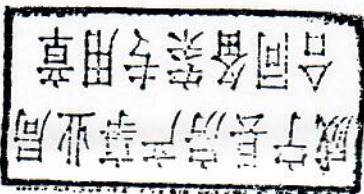 宁县房产事业局
合同备案专用章